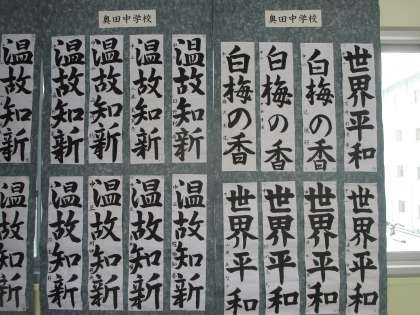 奥田中学校
奥田中学校
世界平和
白梅の香
白梅の香
白梅の香
温故知新
温故知新
温故知新
温故知新
温故知新
世界平和
世界平和
世界平和
世界平和
温故知新
温故知新
温故知新
温故知新
温故知新